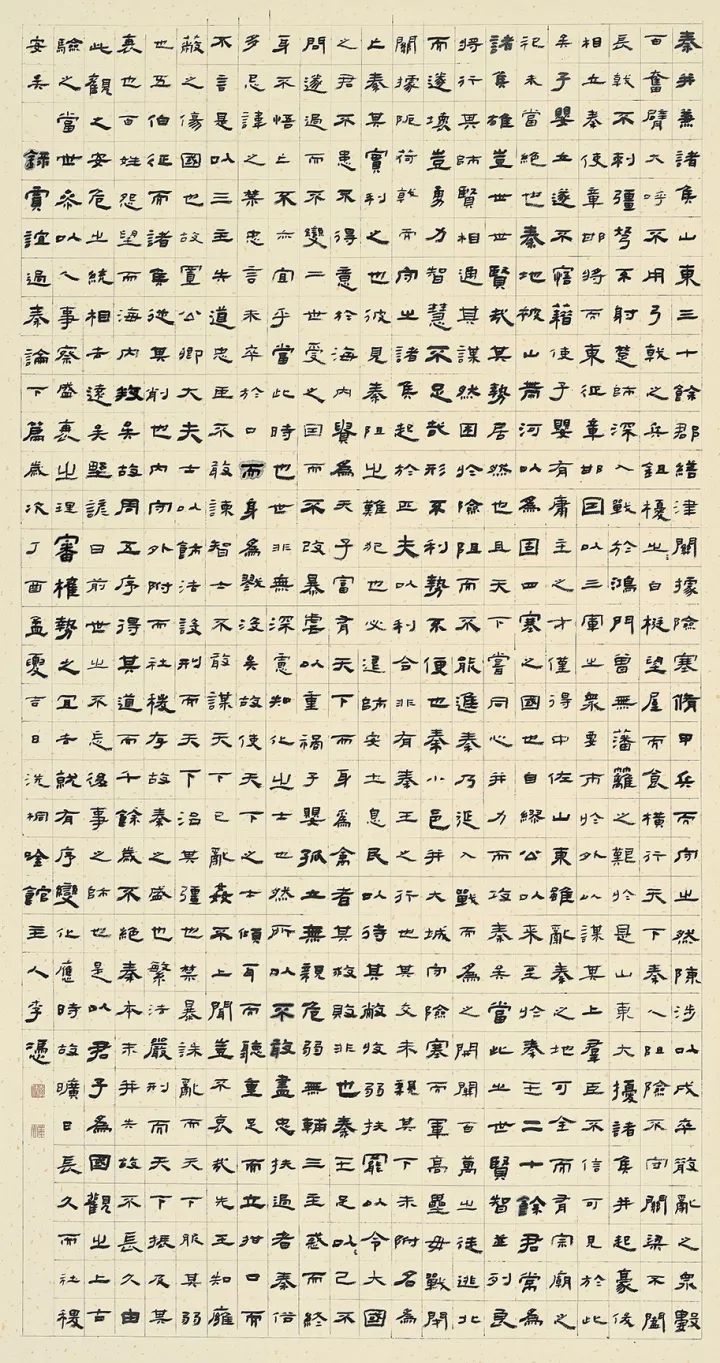 秦并兼諸侯山東三十餘郡繕津關據險塞脩甲兵而守之然陳涉以戍卒散亂之衆數
百奮臂大呼不用弓戟之兵鉏櫌之白梃望屋而食橫行天下秦人阻險不守關梁不闔
長戟不刺彊弩不射楚師深入戰於鴻門曾無藩籬之艱於是山東大擾諸侯并起豪俊
相立秦使章邯將而東征章邯因以三軍之衆要市於外以謀其上羣臣不信可見於此
矣子嬰立遂不寤藉使子嬰有庸主之才僅得中佐山東雖亂秦之地可全而有宗廟之
祀未當絕也秦地被山帶河以為固四塞之國也自繆公以來至於秦王二十餘君常為
諸侯雄豈世世賢哉其勢居然也且天下嘗同心并力而攻秦矣當此之世賢智並列良
將行其師賢相通其謀然困於險阻而不能進秦乃延入戰而為之開關百萬之徒逃北
而遂壞豈勇力智慧不足哉形不利勢不便也秦小邑并大城守險塞而軍高壘毋戰閉
關據阨荷戟而守之諸侯起於匹夫以利合非有素王之行也其交未親其下未附名為
上秦其實利之也彼見秦阻之難犯也必退師安土息民以待其敝收弱扶罷以令大國
之君不患不得意於海內貴為天子富有天下而身為禽者其救敗非也秦王足以己不
問遂過而不變二世受之因而不改暴虐以重禍子嬰孤立無親危弱無輔三主惑而終
身不悟亡不亦宜乎當此時也世非無深慮知化之士也然所以不敢盡忠拂過者秦俗
多忌諱之禁忠言未卒於口而身為戮沒矣故使天下之士傾耳而聽重足而立拑口而
不言是以三主失道忠臣不敢諫智士不敢謀天下已亂姦不上聞豈不哀哉先王知雍
蔽之傷國也故置公卿大夫士以飾法設刑而天下治其彊也禁暴誅亂而天下服其弱
也五伯征而諸侯從其削也內守外附而社稷存故秦之盛也繁法嚴刑而天下振及其
衰也百姓怨望而海內叛矣故周五序得其道而千餘歲不絕秦本末并失故不長久由
此觀之安危之統相去遠矣野諺曰前世之不忘後事之師也是以君子為國觀之上古
驗之當世參以人事察盛衰之理審權勢之宜去就有序變化應時故曠日長久而社稷
安矣 錄賈誼過秦論下篇歲次丁酉孟夏吉日洗桐吟館主人李憑